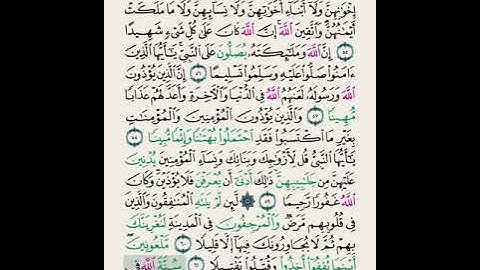 إِخْوَٰنِهِنَّ وَلَآ أَبْنَآءِ أَخَوَٰتِهِنَّ وَلَا نِسَآئِهِنَّ وَلَا مَا مَلَكَتْ
أَيْمَٰنُهُنَّ ۗ وَٱتَّقِينَ ٱللَّهَ ۚ إِنَّ ٱللَّهَ كَانَ عَلَىٰ كُلِّ شَىْءٍ شَهِيدًا
٥٥ إِنَّ ٱللَّهَ وَمَلَٰٓئِكَتَهُۥ يُصَلُّونَ عَلَى ٱلنَّبِىِّ ۚ يَٰٓأَيُّهَا ٱلَّذِينَ
ءَامَنُوا۟ صَلُّوا۟ عَلَيْهِ وَسَلِّمُوا۟ تَسْلِيمًا ٥٦ إِنَّ ٱلَّذِينَ يُؤْذُونَ
ٱللَّهَ وَرَسُولَهُۥ لَعَنَهُمُ ٱللَّهُ فِى ٱلدُّنْيَا وَٱلْءَاخِرَةِ وَأَعَدَّ لَهُمْ عَذَابًا
مُّهِينًا ٥٧ وَٱلَّذِينَ يُؤْذُونَ ٱلْمُؤْمِنِينَ وَٱلْمُؤْمِنَٰتِ
بِغَيْرِ مَا ٱكْتَسَبُوا۟ فَقَدِ ٱحْتَمَلُوا۟ بُهْتَٰنًا وَإِثْمًا مُّبِينًا ٥٨
يَٰٓأَيُّهَا ٱلنَّبِىُّ قُل لِّأَزْوَٰجِكَ وَبَنَاتِكَ وَنِسَآءِ ٱلْمُؤْمِنِينَ يُدْنِينَ
عَلَيْهِنَّ مِن جَلَٰبِيبِهِنَّ ۚ ذَٰلِكَ أَدْنَىٰٓ أَن يُعْرَفْنَ فَلَا يُؤْذَيْنَ ۗ وَكَانَ
ٱللَّهُ غَفُورًا رَّحِيمًا ٥٩ ۞ لَّئِن لَّمْ يَنتَهِ ٱلْمُنَٰفِقُونَ وَٱلَّذِينَ
فِى قُلُوبِهِم مَّرَضٌ وَٱلْمُرْجِفُونَ فِى ٱلْمَدِينَةِ لَنُغْرِيَنَّكَ
بِهِمْ ثُمَّ لَا يُجَاوِرُونَكَ فِيهَآ إِلَّا قَلِيلًا ٦٠ مَّلْعُونِينَ ۖ
أَيْنَمَا ثُقِفُوٓا۟ أُخِذُوا۟ وَقُتِّلُوا۟ تَقْتِيلًا ٦١ سُنَّةَ ٱللَّهِ فِى